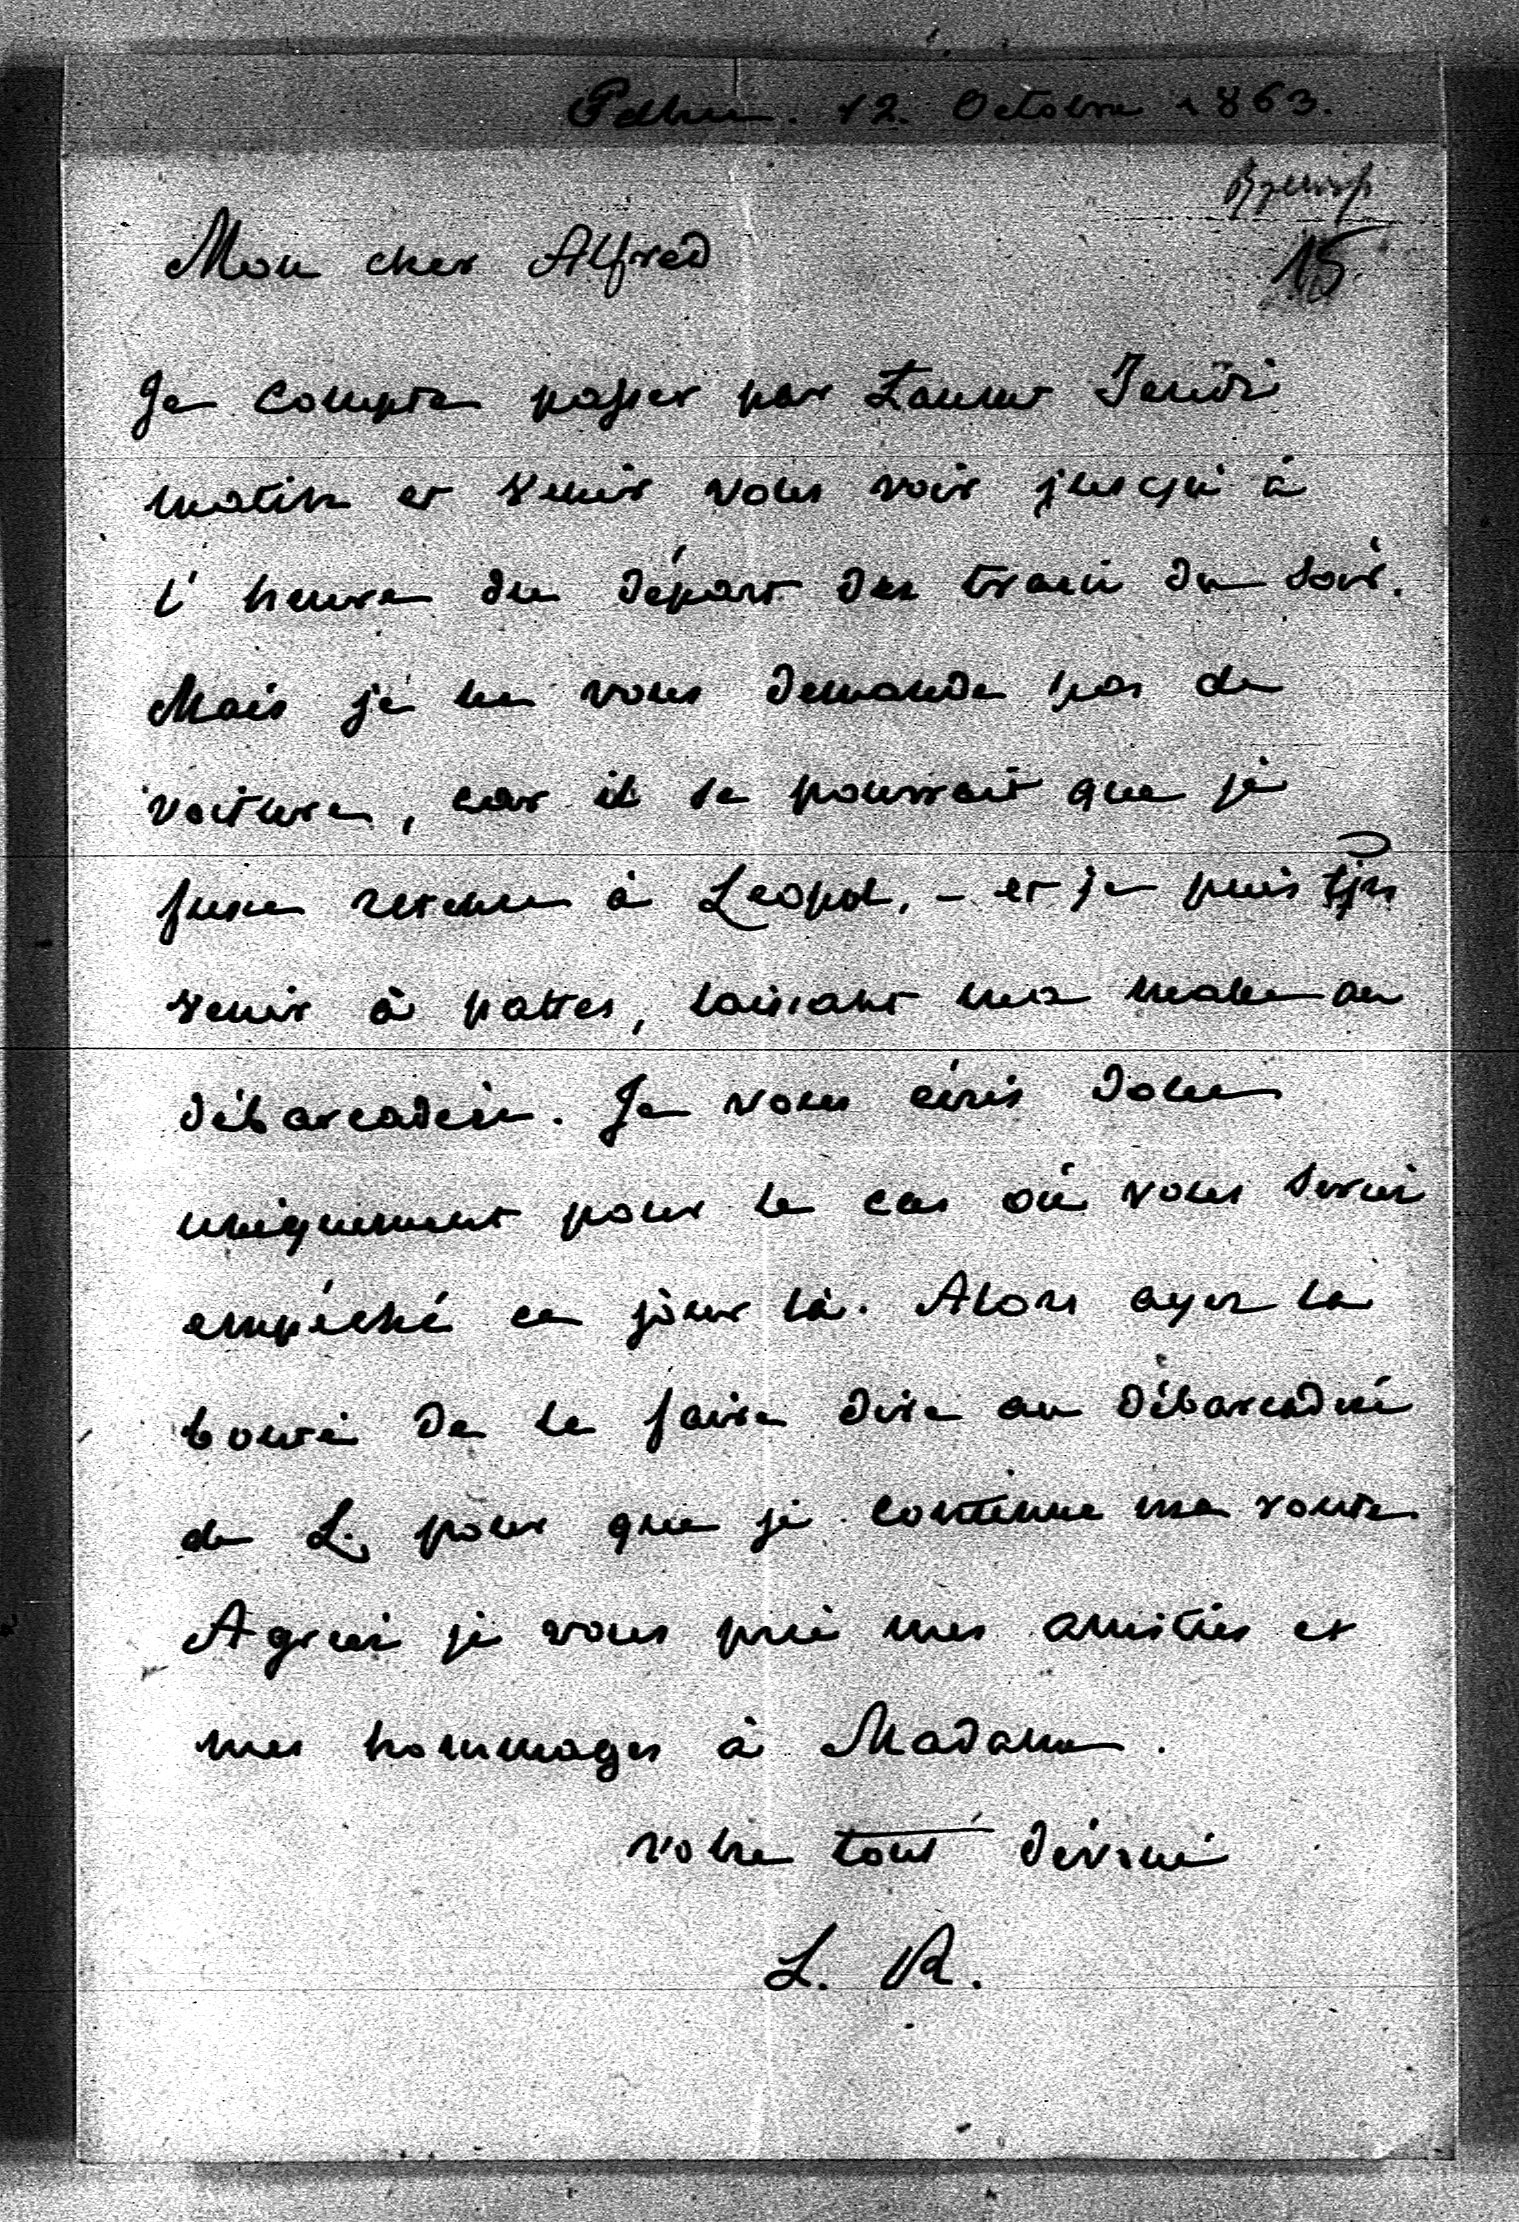 12. Octobre 1863.
15.
Mon cher Alfred
Je compte passer par Łancut Jeudi
matin et venir vous voir jusqu'à
l'heure du départ du train du soir.
Mais je ne vous demande pas de
voiture, car il se pourrait que je
fusse retenu à Leopol, – et je puis tjrs
venir à pattes, laissant ma malle au
débarcadère. Je vous écris donc
uniquement pour le cas où vous seriez
empéché ce jour là. Alors ayez la
bonté de le faire dire au débarcadère
de Ł, pour que je continue ma route
Agreez je vous prie mes amitiés et
mes hommages à Madame.
Votre tout dévoué
L. R.